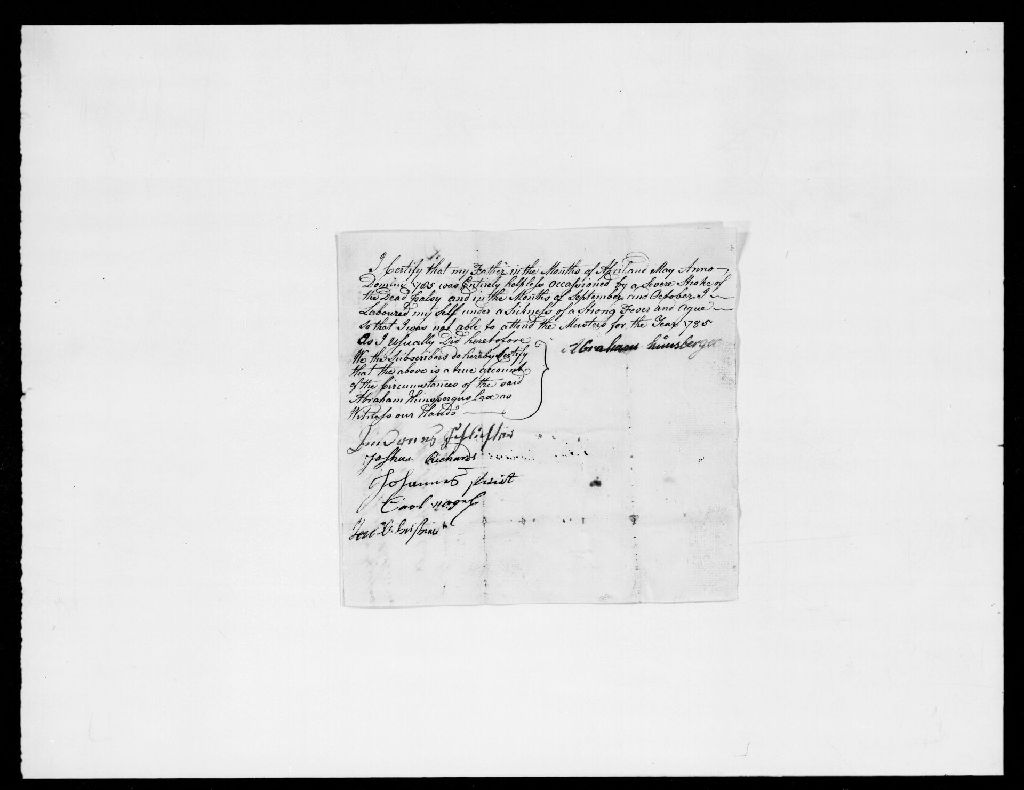 I Certify that my Father in the Months of April and May Anno
Domini 1785 was Entirely helpless occassioned by a Severe Stroke of
the Dead Palsy and in the Months of September and October I
Laboured my self under a Sickness of a Strong Fever and Ague
So that I was not able to attend the Musters for the Year 1785
As I usually Did heretofore
Abraham Hunsberger
We the Subscribers do hereby Certify
that the above is a true account
of the Circumstances of the said
Abraham
Witness our Hands
Joshua Richards
Johannes
Carl